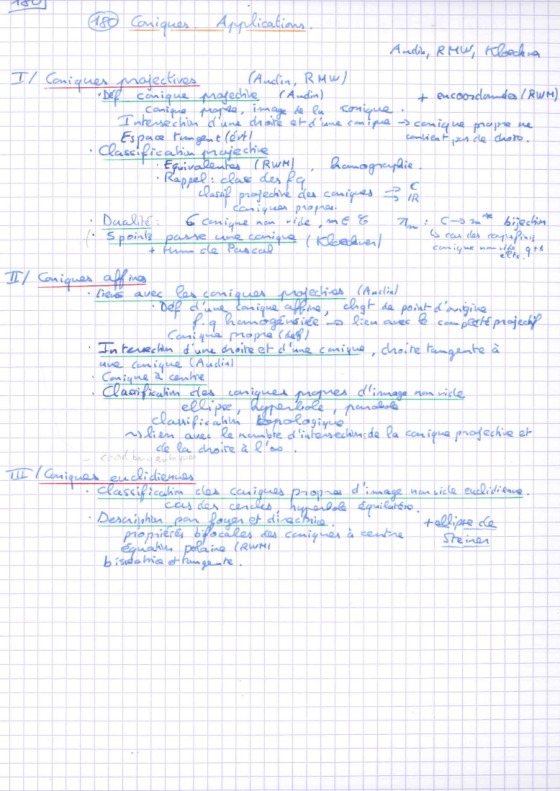 180
180 Coniques. Applications.
Audin, RMW,
I/ Coniques projectives (Audin, RMW)
· Déf conique projective (Audin) + en coordonnées (RWM)
conique propre, image de la conique.
Intersection d'une droite et d'une conique → conique propre ne contient pas de droite.
Espace tangent
· Classification projective
· Equivalentes (RWM), homographie.
· Rappel: clas des fq
classif projective des coniques → C → IR
coniques propres
· Dualité: C conique non vide, m ∈ C : C → m* bijection
↳ cas des corps finis
· 5 points passe une conique conique non vide q+1
+ thm de Pascal
II/ Coniques affines
· Liens avec les coniques projectives (Audin)
· Déf d'une conique affine, chgt de point d'origine
f.q homogénéisée → lien avec le complété projectif
Conique propre (déf)
· Intersection d'une droite et d'une conique, droite tangente à
une conique (Audin)
· Conique à centre
· Classification des coniques propres d'image non vide
ellipse, hyperbole, parabole
classification topologique
~> lien avec le nombre d'intersection de la conique projective et
de la droite à l'∞.
III/ Coniques euclidiennes
· Classification des coniques propres d'image non vide euclidienne.
cas des cercles, hyperbole équilatère.
· Description par foyer et directrice. + ellipse de
propriétés bifocales des coniques à centre Steiner
équation polaire (RWM)
bissectrice et tangente.